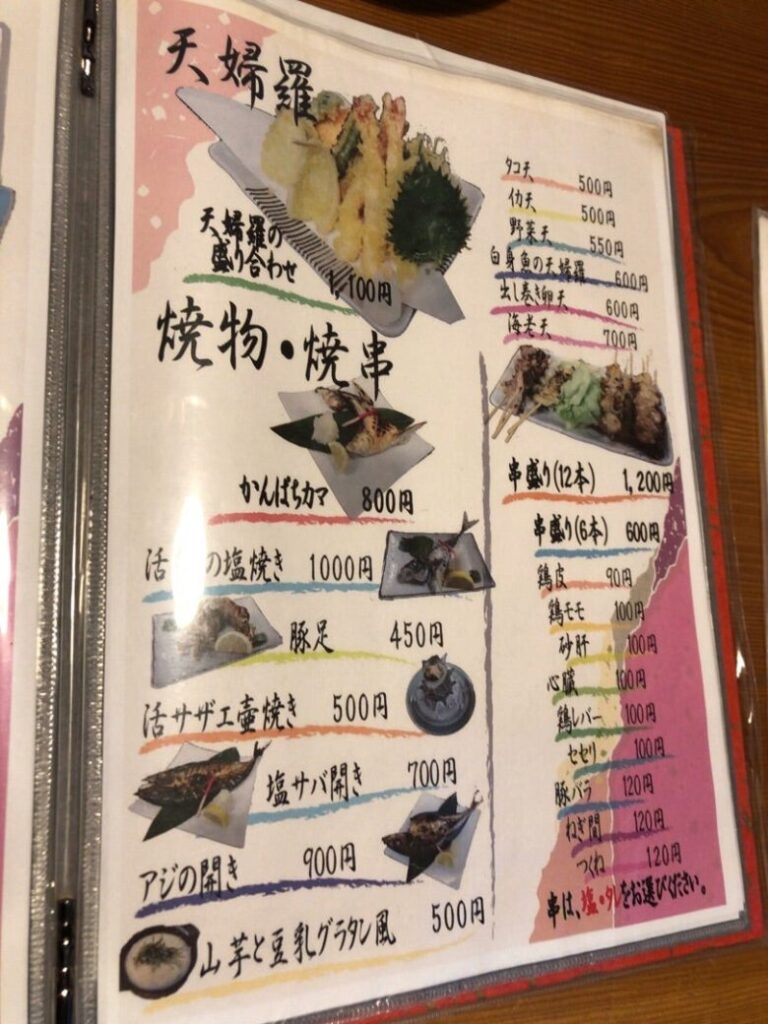 天婦羅
天婦羅の
盛り合わせ 1,100円
タコ天 500円
イカ天 500円
野菜天 550円
白身魚の天婦羅 600円
出し巻き卵天 600円
海老天 700円
焼物・焼串
かんぱちカマ 800円
活 の塩焼き 1000円
豚足 450円
活サザエ壷焼き 500円
塩サバ開き 700円
アジの開き 900円
山芋と豆乳グラタン風 500円
串盛り(12本) 1,200円
串盛り(6本) 600円
鶏皮 90円
鶏モモ 100円
砂肝 100円
心臓 100円
鶏レバー 100円
セセリ 100円
豚バラ 120円
ねぎ間 120円
つくね 120円
串は、塩・タレをお選びください。